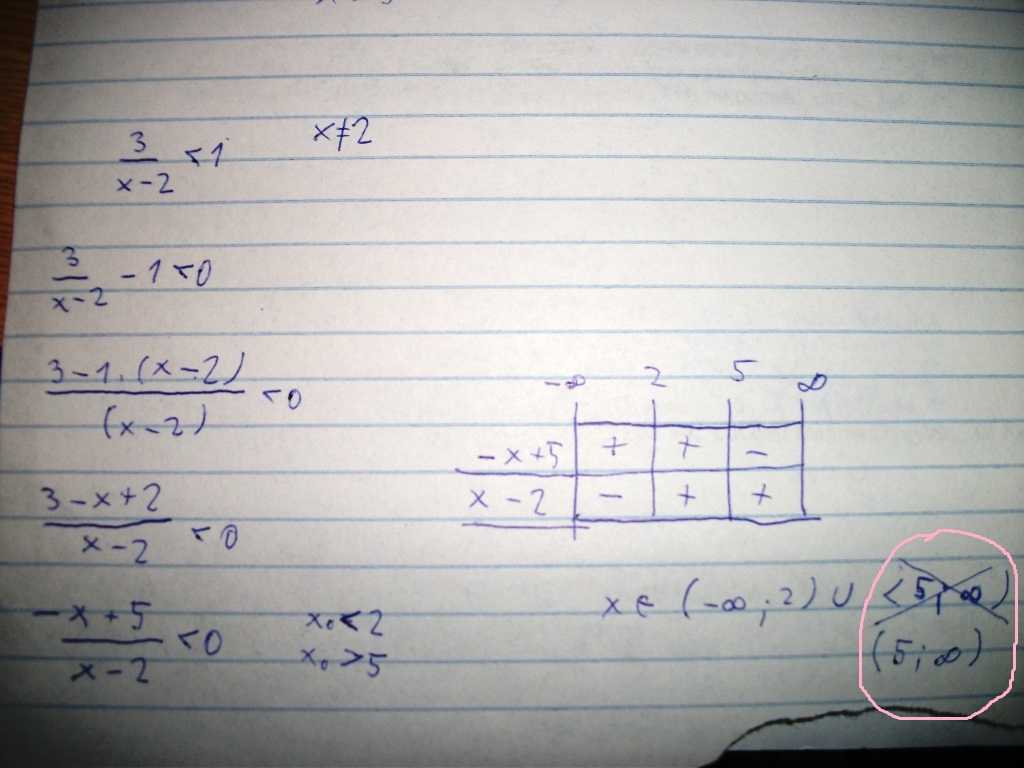 3/(x-2) < 1    x≠2
3/(x-2) - 1 < 0
(3-1.(x-2))/(x-2) < 0
(3-x+2)/(x-2) < 0
(-x+5)/(x-2) < 0
x₀ < 2
x₀ > 5
-∞ 2 5 ∞
-x+5 + + -
x-2 - + +
x ∈ (-∞;2) ∪ <5;∞)
(5;∞)